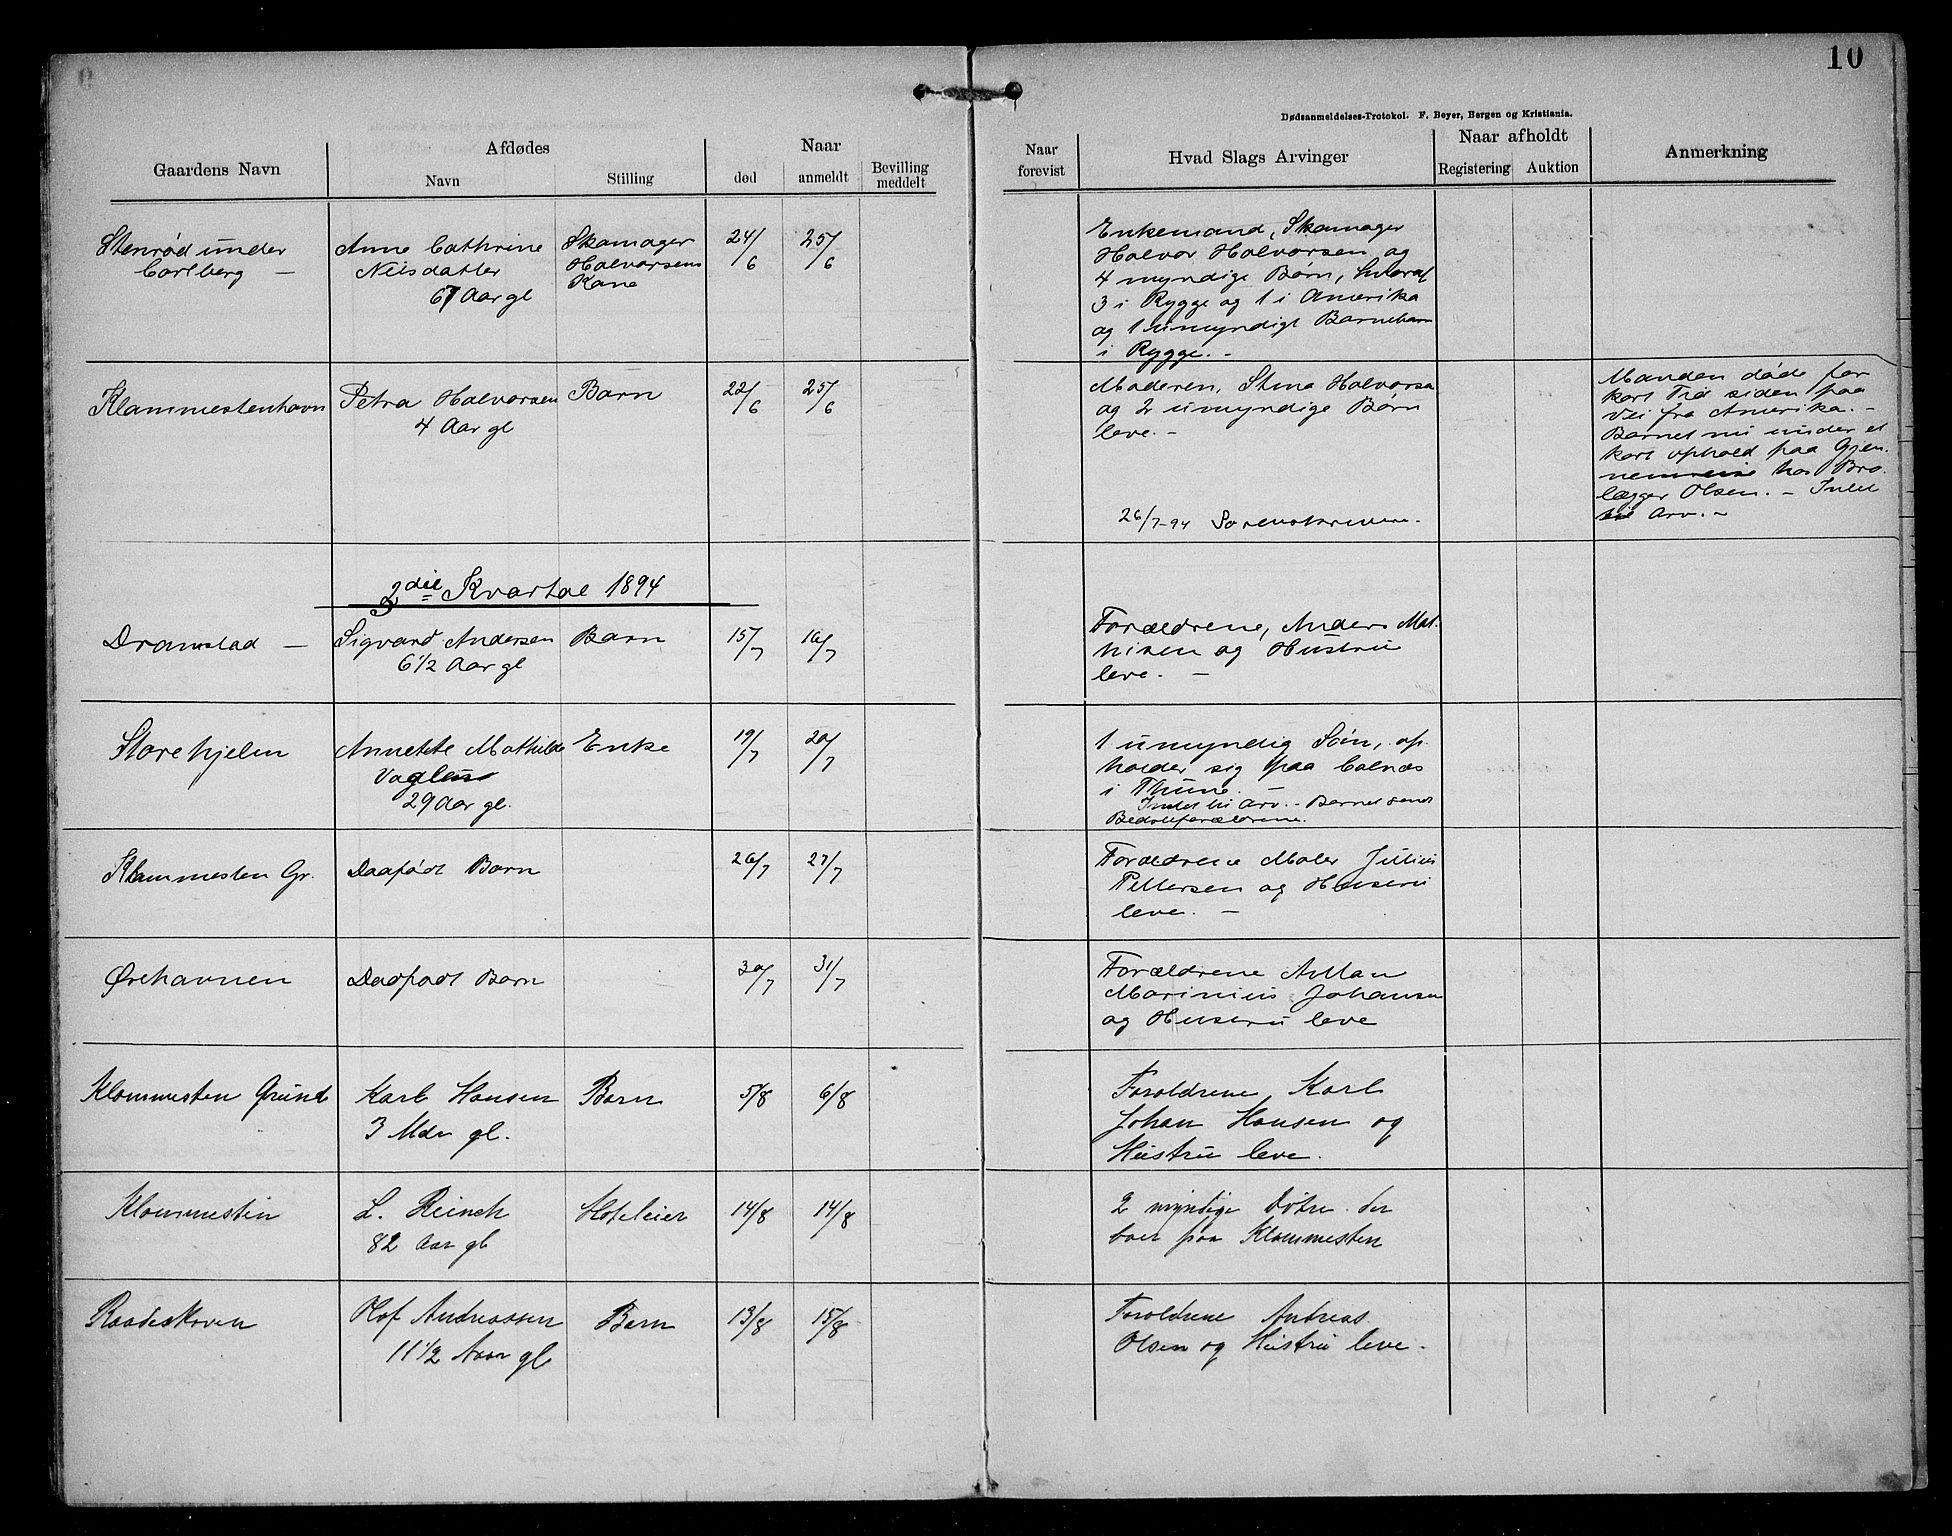 10
Dødsanmeldelses-Protokol. F. Beyer, Bergen og Kristiania.
Gaardens Navn
Afdødes
Navn
Stilling
Naar
død
anmeldt
Bevilling
meddelt
Naar
forevist
Hvad Slags Arvinger
Naar afholdt
Registering
Auktion
Anmerkning
Stenrød under
Carlberg —
Anne Cathrine
Neilsdatter
67 Aar gl
Skomager
Halvorsens
Kone
24/6
25/6
Enkemand, Skomager
Halvor Halvorsen og
4 myndige Børn, hvoraf
3 i Rygge og 1 i Amerika
og 1 umyndigt Barnebarn
i Rygge. -
Klommestenhavn
Petra Halvorsen
4 Aar gl
Barn
22/6
25/6
Moderen, Stina Halvorsen
og 2 umyndige Børn
leve. -
26/7-94 Sorenskriveren.
Manden døde for
kort Tid siden paa
Vei fra Amerika. -
Barnet nu under et
kort ophold paa Gjen-
nemreise hos Bro-
lægger Olsen. - Intet
til Arv. -
3die Kvartal 1894
Dramstad —
Sigvard Andersen
6 1/2 Aar gl
Barn
15/7
16/7
Forældrene, Anders Mat-
hisen og Hustru
leve. -
Storehjelen
Annette Mathilde
29 Aar gl.
Enke
19/7
20/7
1 umyndig Søn, op-
holder sig paa Calnæs
i Thune. -
Intet til Arv. - Barnet hos
Bedsteforældrene.
Klommesten Gr.
Daafødt Barn
26/7
27/7
Forældrene Maler Julius
Pettersen og Hustru
leve. -
Ørehavnen
Daafødt Barn
30/7
31/7
Forældrene Anton
Marinius Johansen
og Hustru leve
Klommesten Grund
Karl Hansen
3 Mdr gl.
Barn
5/8
6/8
Forældrene Karl
Johan Hansen og
Hustru leve.
Klommestin
L. Reinch
82 Aar gl
Hoteleier
14/8
14/8
2 myndige Døtre der
boer paa Klommesten
Raadeskoven
Olof Andreassen
11 1/2 Aar gl
Barn
13/8
15/8
Forældrene Andreas
Olsen og Hustru leve.